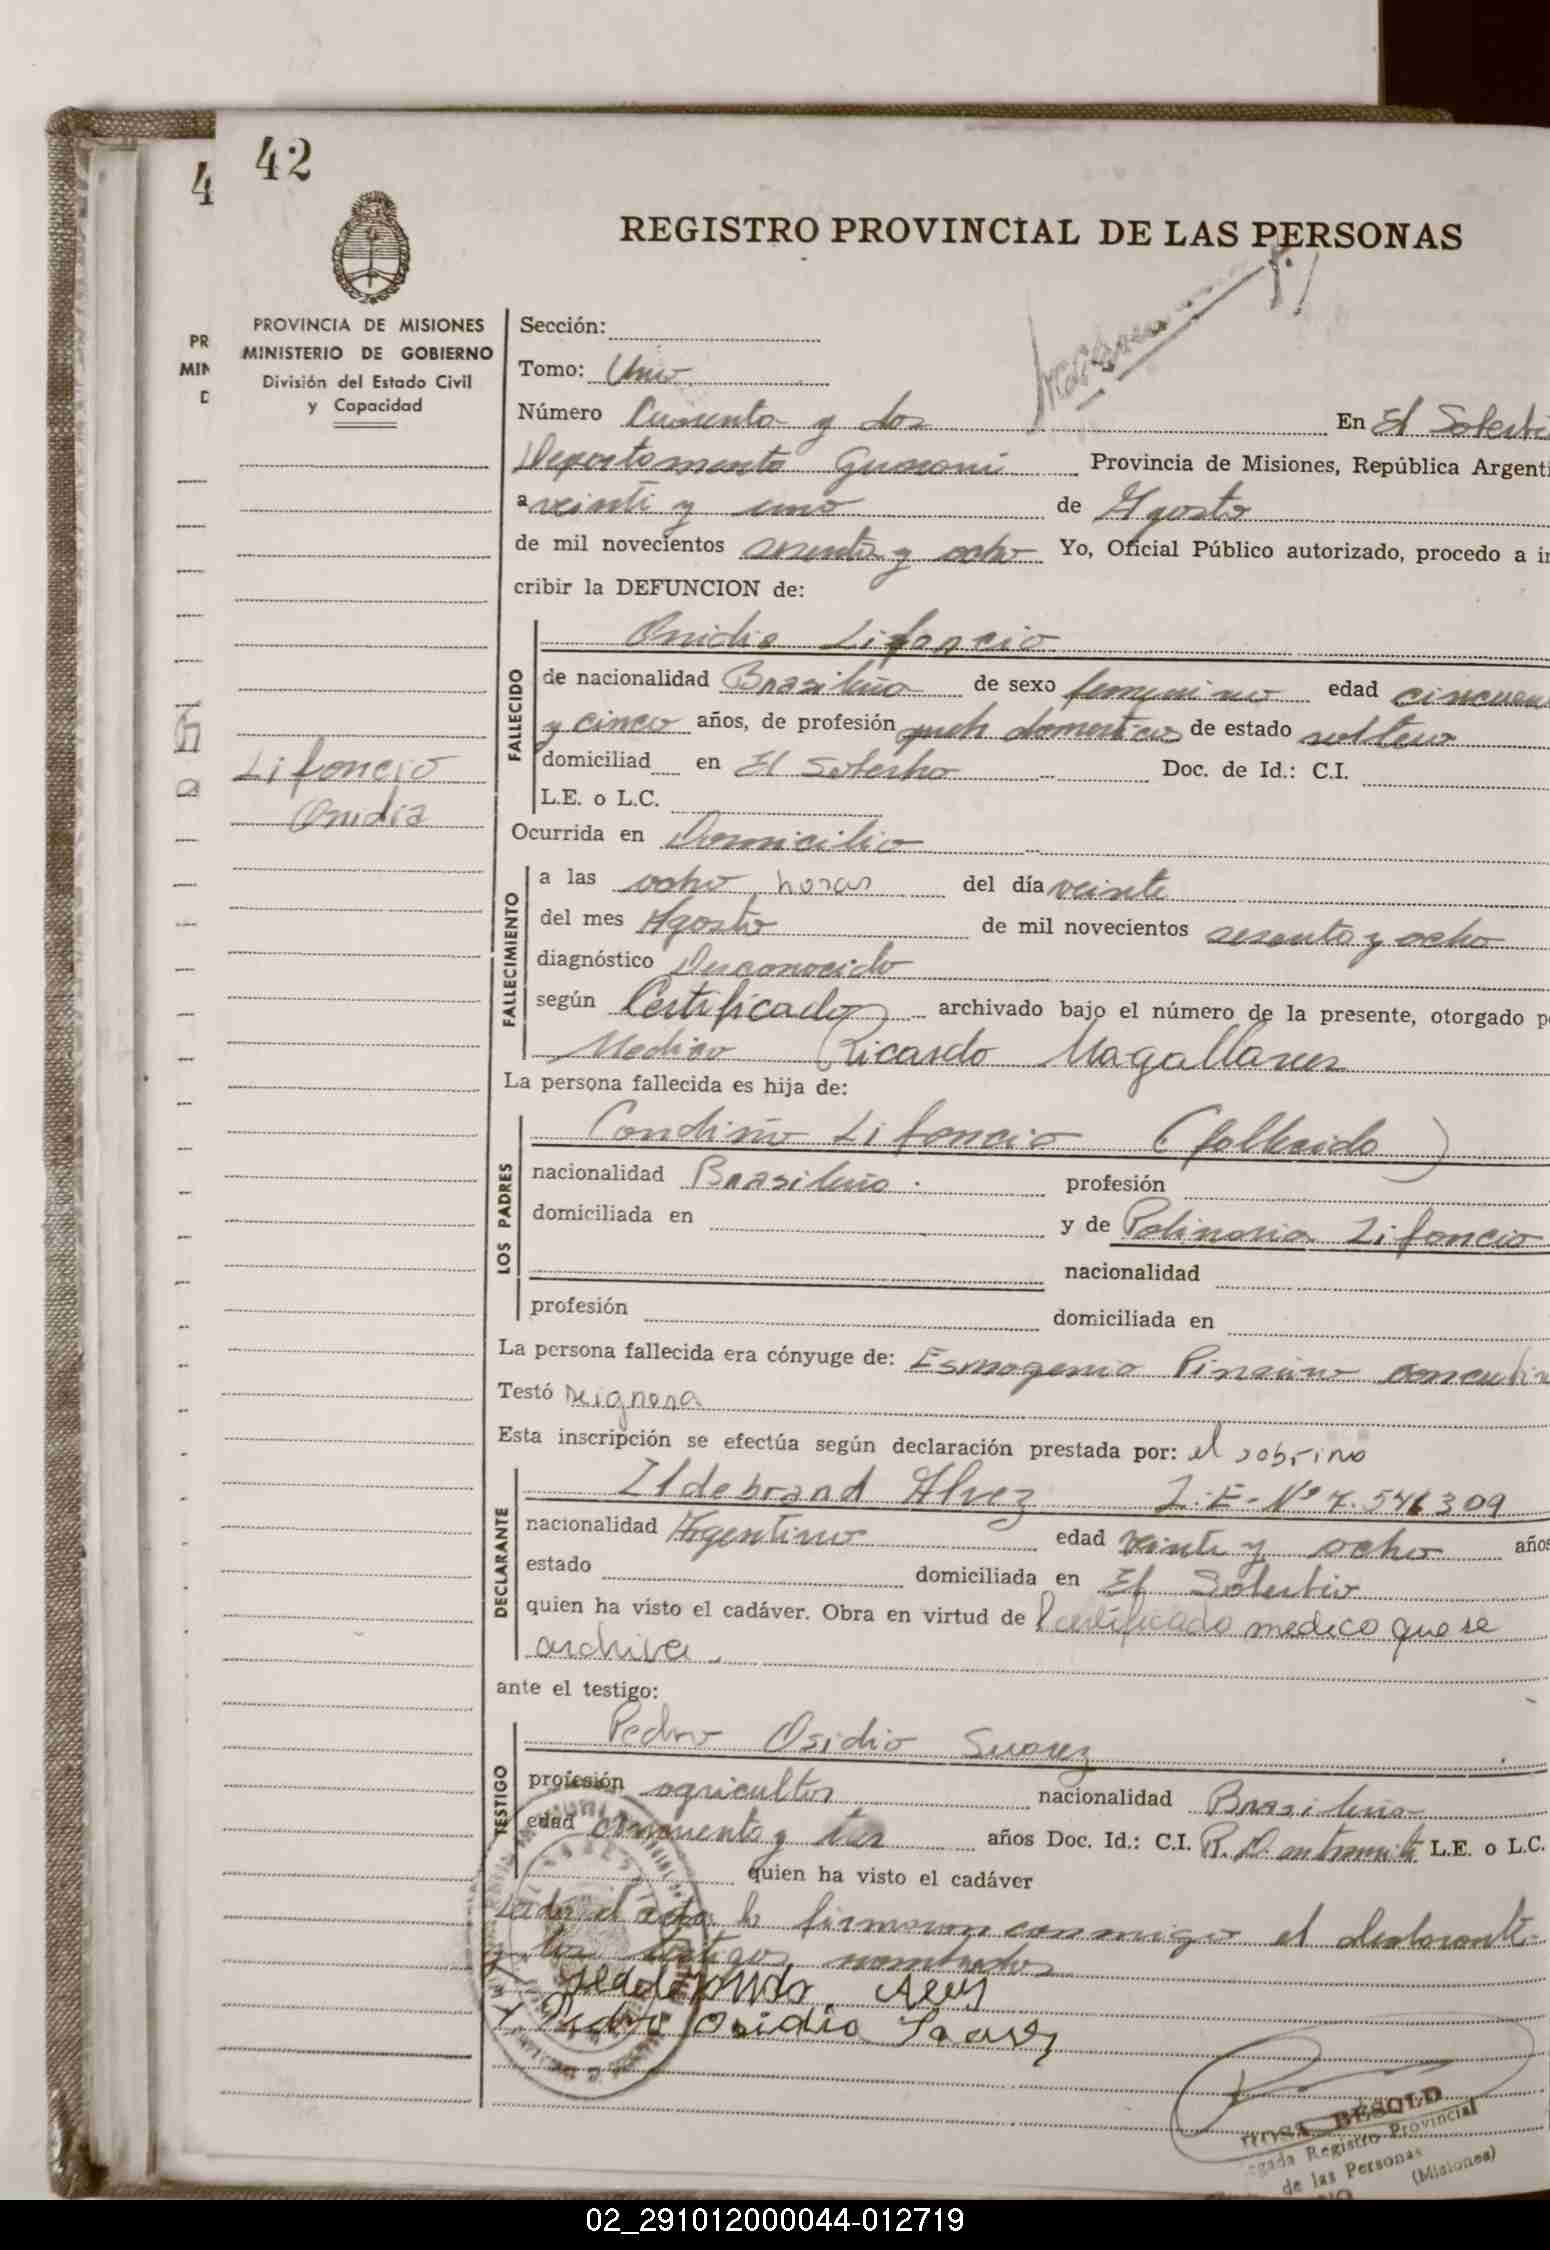 42
4
REGISTRO PROVINCIAL DE LAS PERSONAS
PROVINCIA DE MISIONES
MINISTERIO DE GOBIERNO
División del Estado Civil
y Capacidad
PR
MIN
D
Sección:
Tomo: Uno
Número Cuarenta y dos En El Soberbi
Departamento Guarani Provincia de Misiones, República Argenti
a veinti y uno de Agosto
de mil novecientos sesenta y ocho Yo, Oficial Público autorizado, procedo a in
cribir la DEFUNCION de:
FALLECIDO
Onidia Lifoncio
de nacionalidad Brasileña de sexo femenino edad cincuen
y cinco años, de profesión queh domesticos de estado soltera
domiciliad en El Soberbio Doc. de Id.: C.I.
L.E. o L.C.
Lifoncio
Onidia
Ocurrida en Domicilio
FALLECIMIENTO
a las ocho horas del día veinte
del mes Agosto de mil novecientos sesenta y ocho
diagnóstico Desconocido
según Certificado archivado bajo el número de la presente, otorgado p
Medico Ricardo Magallanes
La persona fallecida es hija de:
LOS PADRES
Condiño Lifoncio (fallecido)
nacionalidad Brasileño profesión
domiciliada en y de Polinaria Lifoncio
nacionalidad
profesión domiciliada en
La persona fallecida era cónyuge de: Esmogenio concubin
Testó se ignora
Esta inscripción se efectúa según declaración prestada por: el sobrino
DECLARANTE
Ildebrand Alvez L.E. Nº 7.546309
nacionalidad Argentino edad veinte y ocho años
estado domiciliada en El Soberbio
quien ha visto el cadáver. Obra en virtud de certificado medico que se
archiva.
ante el testigo:
TESTIGO
Pedro Osidio Suarez
profesión agricultor nacionalidad Brasileña
edad cincuenta y tres años Doc. Id.: C.I. R.D. en tramite L.E. o L.C.
quien ha visto el cadáver
Leida el acta la firmaron conmigo el declarante
y los testigos nombrados
Pedro Osidio Suarez
ROSA BESOLD
gada Registro Provincial
de las Personas
(Misiones)
02_291012000044-012719